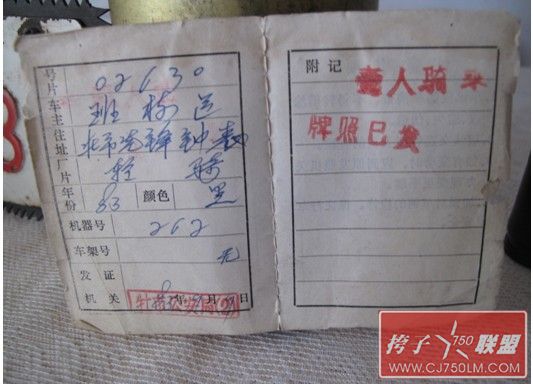 号片 02630
车主
住址
厂片 轻骑
年份 83 颜色 黑
机器号 262
车架号 无
发证
机关 年 月 日
附记
壹人骑
牌照已发
挎子750联盟
WWW.CJ750LM.COM